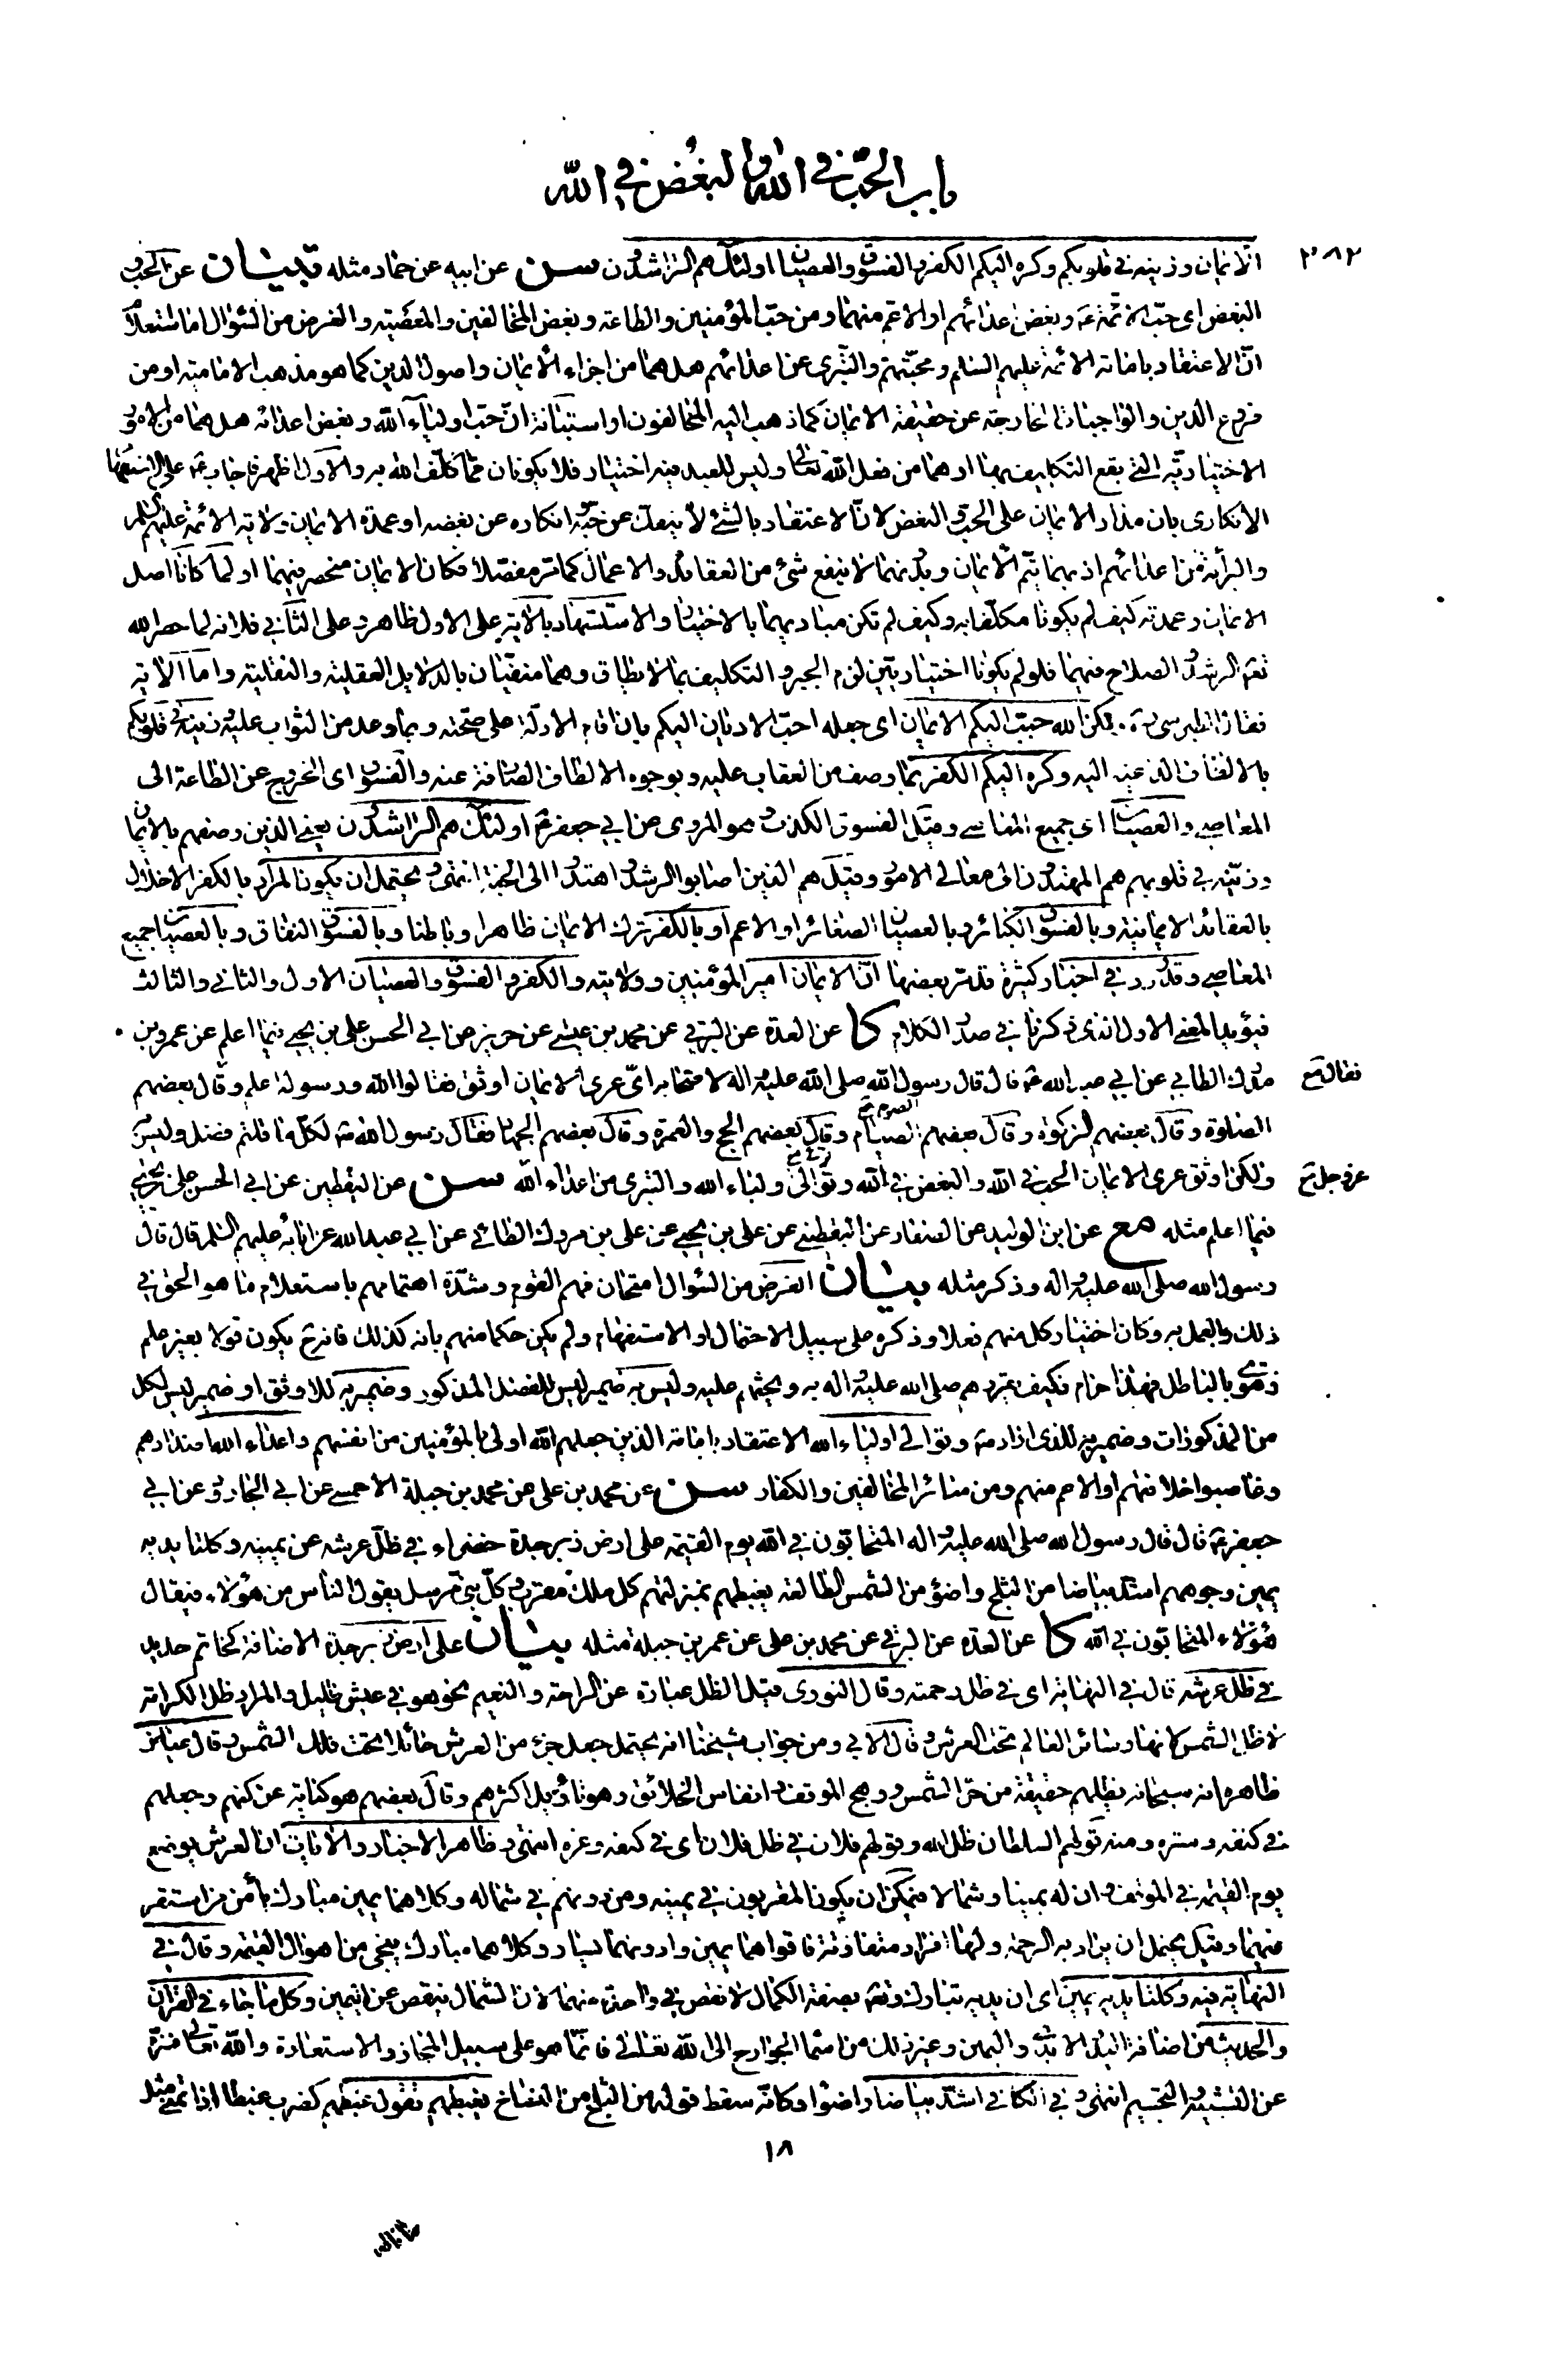 باب الحبّ فی الله والبغض فی الله
٣٨٢
الایمان وزینه فی قلوبکم وکره الیکم الکفر والفسوق والعصیان اولئک هم الراشدون سن عن ابیه عن حماد مثله تبیان عن الحب و
البغض ای حبّ الائمّة ع وبغض اعدائهم او الاعم منهما ومن حبّ المؤمنین والطاعة وبغض المخالفین والمعصیة والغرض من السّؤال اما استعلام
انّ الاعتقاد بامامة الائمّة علیهم السّلم ومحبّتهم والتبرّی عن اعدائهم هل هما من اجزاء الایمان واصول الدین کما هو مذهب الامامیّة او من
فروع الدین والواجبات الخارجة عن حقیقة الایمان کما ذهب الیه المخالفون او استبانة انّ حبّ اولیاء الله وبغض اعدائه هل هما من الامور
الاختیاریّة التی یقع التکلیف بهما او هما من فعل الله تعالی ولیس للعبد فیه اختیار فلا یکونان ممّا کلّف الله به والاول اظهر فاجاب ع علی الاستفهام
الانکاری بان مدار الایمان علی الحب والبغض لانّ الاعتقاد بالشئ لا ینفک عن حبّه وانکاره عن بغضه او عمدة الایمان ولایة الائمّة علیهم السلم
والبرأیة من اعدائهم اذ بهما یتمّ الایمان وبدونهما لا ینفع شئ من العقائد والاعمال کما مر مفصّلا فکان الایمان منحصر فیهما او لما کانا اصل
الایمان وعمدته کیف لم یکونا مکلّفا به وکیف لم تکن مبادیهما بالاختیار والاستشهاد بالآیة علی الاول ظاهر وعلی الثانی فلانه لما حصر الله
تعم الرشد والصلاح فیهما فلو لم یکونا اختیاریّین لزم الجبر والتکلیف بما لا یطاق وهما منفیّان بالدلایل العقلیّة والنقلیّة واما الآیة
فقال الطبرسی ره ولکن الله حبّب الیکم الایمان ای جعله احبّ الادیان الیکم بان اقام الادلّة علی صحّته وبما وعد من الثواب علیه وزینه فی قلوبکم
بالالطاف الداعیة الیه وکره الیکم الکفر بما وصف من العقاب علیه وبوجوه الالطاف الصارفة عنه والفسوق ای الخروج عن الطاعة الی
المعاصی والعصیان ای جمیع المعاصی وقیل الفسوق الکذب وهو المروی عن ابی جعفر ع اولئک هم الراشدون یعنی الذین وصفهم بالایمان
وزیّنه فی قلوبهم هم المهتدون الی معالی الامور وقیل هم الذین اصابوا الرشد واهتدوا الی الجنة انتهی ویحتمل ان یکون المراد بالکفر الاخلال
بالعقائد الایمانیة وبالفسوق الکبائر وبالعصیان الصغائر او الاعم او بالکفر ترک الایمان ظاهرا وباطنا وبالفسوق النفاق وبالعصیان جمیع
المعاصی وقد ورد فی اخبار کثیرة قد مر بعضها انّ الایمان امیر المؤمنین وولایته والکفر والفسوق والعصیان الاول والثانی والثالث
فیؤید المعنی الاول الذی ذکرنا فی صدر الکلام کا عن العدة عن البرقی عن محمد بن عیسی عن حریز عن ابی الحسن علی بن یحیی فیما اعلم عن عمرو بن
مدرک الطایی عن ابی عبد الله ع قال قال رسول الله صلی الله علیه واله لاصحابه ایّ عری الایمان اوثق فقالوا الله ورسوله اعلم وقال بعضهم
فقال خ
الصلوة وقال بعضهم الزکوة وقال بعضهم الصیام وقال بعضهم الحج والعمرة وقال بعضهم الجهاد فقال رسول الله ص لکل ما قلتم فضل ولیس به
الصوم خ
ولکن اوثق عری الایمان الحب فی الله والبغض فی الله وتوالی اولیاء الله والتبری من اعداء الله سن عن الیقطین عن ابی الحسن علی بن یحیی
عز وجل خ
فیما اعلم مثله مع عن ابن الولید عن الصفار عن الیقطینی عن علی بن یحیی عن علی بن مروک الطائی عن ابی عبد الله عن ابائه علیهم السلم قال قال
رسول الله صلی الله علیه واله وذکر مثله بیان الغرض من السّؤال امتحان فهم القوم وشدّة اهتمامهم باستعلام ما هو الحق فی
ذلک والعمل به وکان اختیار کل منهم فعلا وذکره علی سبیل الاحتمال او الاستفهام ولم یکن حکما منهم بانه کذلک فانه ح یکون قولا بغیر علم
وفتوی بالباطل فهذا حرام فکیف یقررهم صلی الله علیه واله به ویحثهم علیه ولیس به ضمیر لیس للفضل المذکور وضمیر به للاوثق او ضمیر لیس لکل
من المذکورات وضمیر به للذی اراد ص وتوالی اولیاء الله الاعتقاد بامامة الذین جعلهم الله اولی بالمؤمنین من انفسهم واعداء الله اضدادهم
وغاصبوا خلافتهم او الاعم منهم ومن سائر المخالفین والکفار سن عن محمد بن علی عن محمد بن جبلة الاحمسی عن ابی الجارود عن ابی
جعفر ع قال قال رسول الله صلی الله علیه واله المتحابّون فی الله یوم القیمة علی ارض زبرجدة خضراء فی ظلّ عرشه عن یمینه وکلتا یدیه
یمین وجوههم اشد بیاضا من الثلج واضوء من الشمس الطالعة یغبطهم بمنزلتهم کل ملک مقرب وکلّ نبیّ مرسل یقول الناس من هؤلاء فیقال
هؤلاء المتحابّون فی الله کا عن العدة عن البرقی عن محمد بن علی عن عمر بن جبلة مثله بیان علی ارض زبرجدة الاضافة کخاتم حدید
فی ظل عرشه قال فی النهایة ای فی ظل رحمته وقال النووی قیل الظل عبارة عن الراحة والنعیم نحو هو فی عیش ظلیل والمراد ظل الکرامة
لا ظل الشمس لانها وسائر العالم تحت العرش وقال الابی ومن جواب شیخنا انه یحتمل جعل جزء من العرش حائلا تحت فلک الشمس وقال عیاض
ظاهره انه سبحانه یظلهم حقیقة من حرّ الشمس ووهج الموقف وانفاس الخلائق وهو تأویل اکثرهم وقال بعضهم هو کنایة عن کنهم وجعلهم
فی کنفه وستره ومنه قولهم السلطان ظل الله وقولهم فلان فی ظل فلان ای فی کنفه وعزه انتهی وظاهر الاخبار والایات ان العرش یوضع
یوم القیمة فی الموقف وان له یمینا وشمالا فیمکن ان یکون المقربون فی یمینه ومن دونهم فی شماله وکلاهما یمین مبارک یأمن من استقر
فیهما وقیل یحتمل ان یراد به الرحمة ولها افراد متفاوتة فاقواهما یمین وادونهما یسار وکلاهما مبارک ینجی من اهوال القیمة وقال فی
النهایة فیه وکلتا یدیه یمین ای ان یدیه تبارک وتعم بصفة الکمال لا نقص فی واحدة منهما لان الشمال ینقص عن الیمین وکل ما جاء فی القران
والحدیث من اضافة الید والایدی والیمین وغیر ذلک من اسما الجوارح الی الله تعالی فانما هو علی سبیل المجاز والاستعارة والله تعالی منزّه
عن التشبیه والتجسیم انتهی وفی الکافی اشد بیاضا واضوأ وکانه سقط قوله من الثلج من النساخ یغبطهم تقول غبطهم کضرب غبطا اذا تمنی مثل
١٨